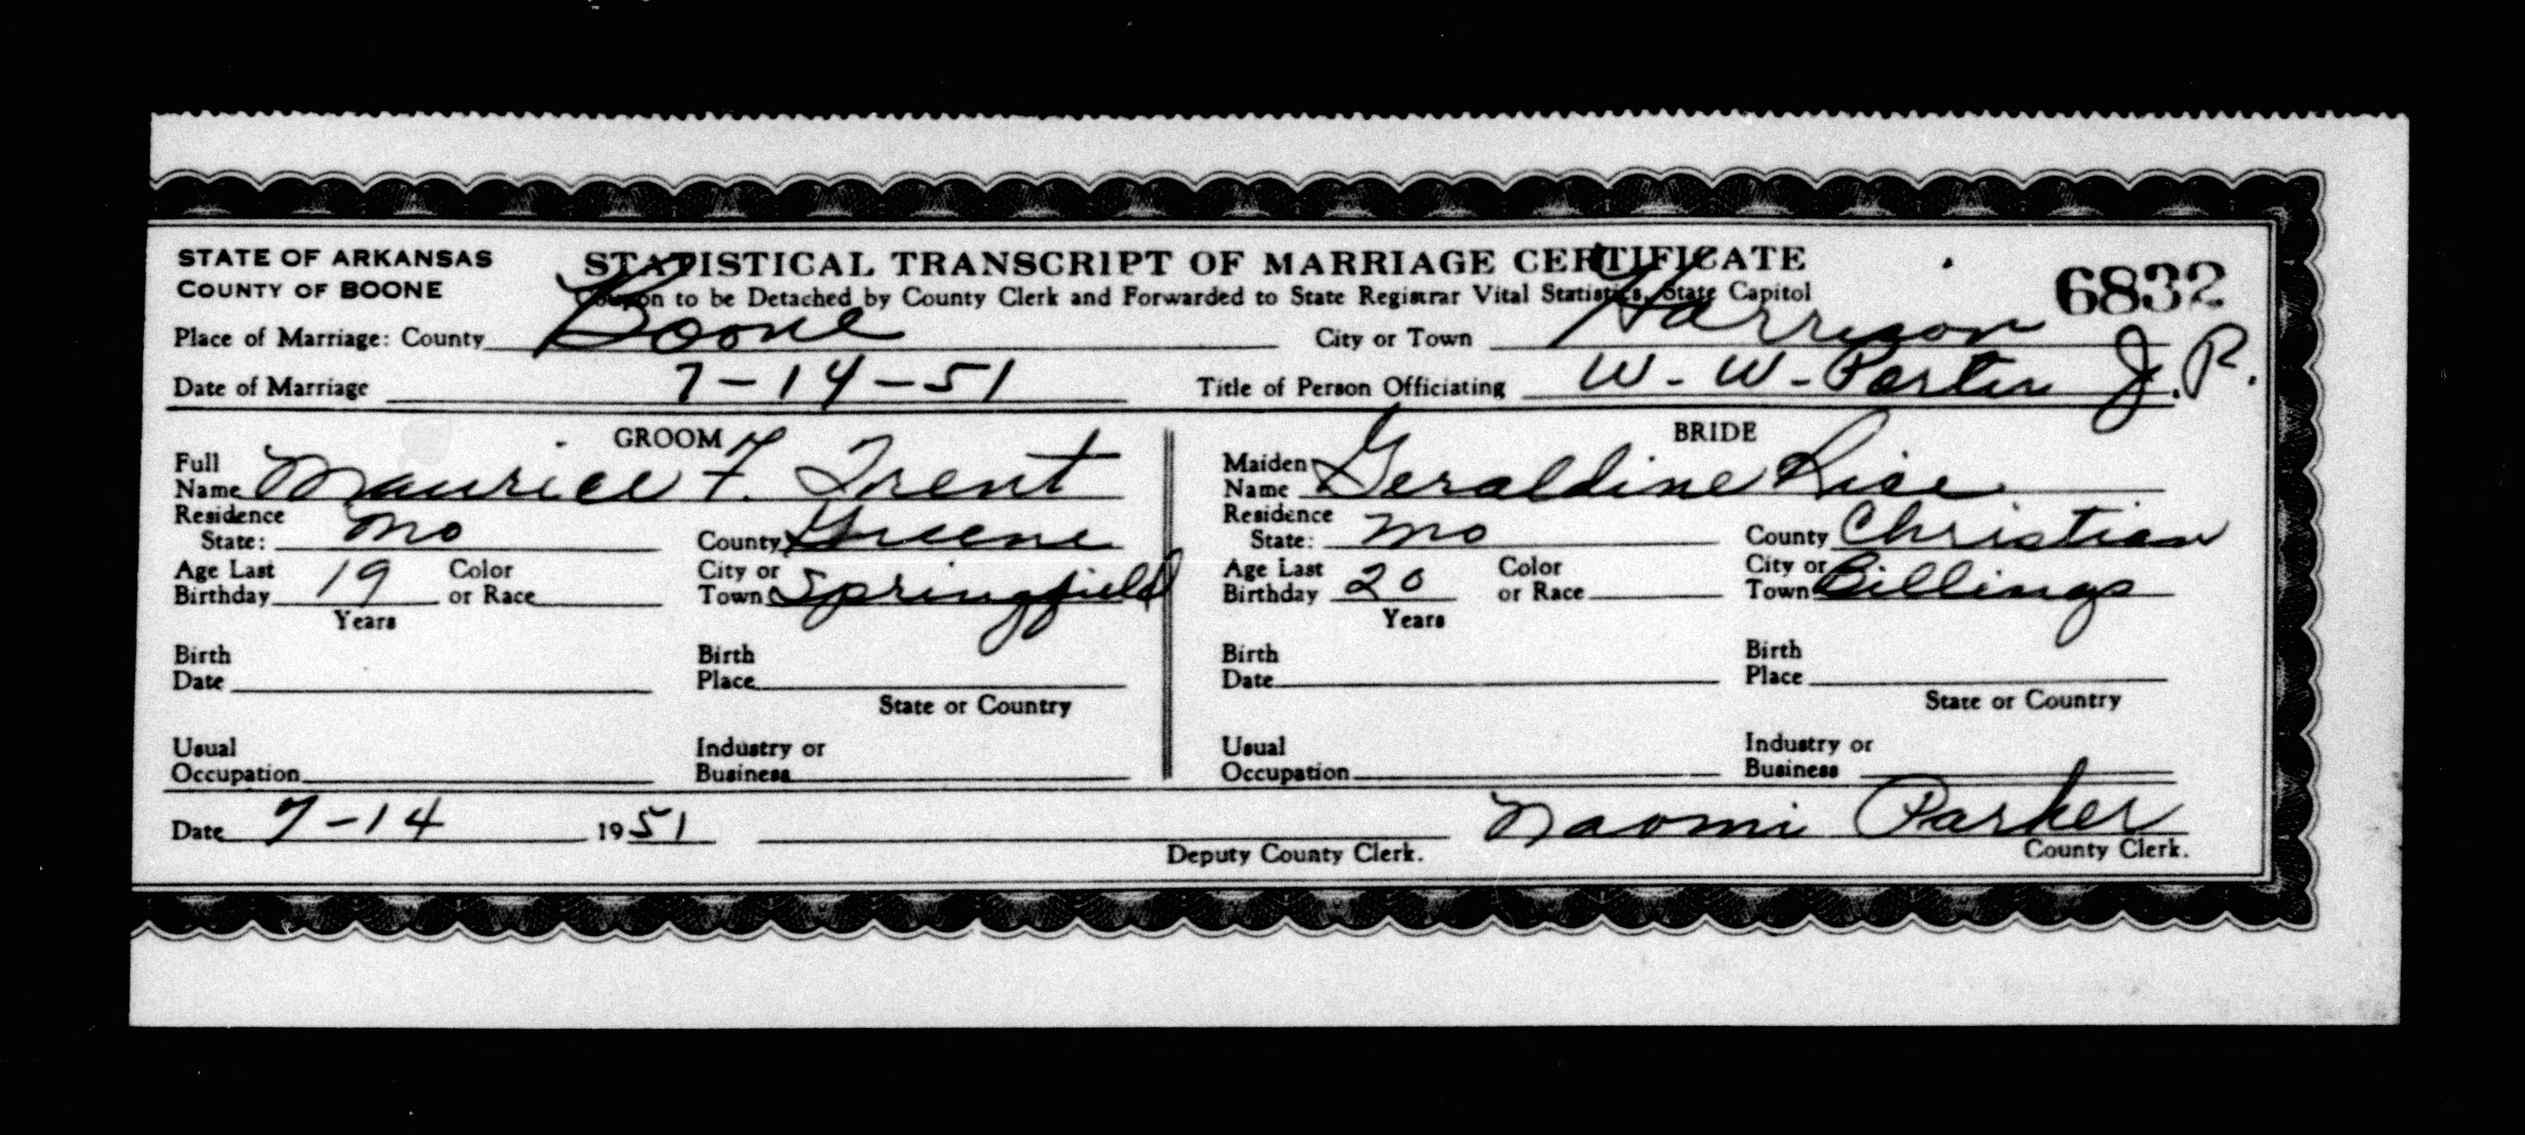 STATE OF ARKANSAS
COUNTY OF BOONE
STATISTICAL TRANSCRIPT OF MARRIAGE CERTIFICATE
Coupon to be Detached by County Clerk and Forwarded to State Registrar Vital Statistics, State Capitol
6832
Place of Marriage: County Boone City or Town Harrison
Date of Marriage 7-14-51 Title of Person Officiating W. W. J.P.
GROOM
Full Name Maurice F. Trent
Residence State: Mo County Greene
Age Last Birthday 19 Years Color or Race City or Town Springfield
Birth Date Birth Place
State or Country
Usual Occupation Industry or Business
BRIDE
Maiden Name Geraldine Rice
Residence State: Mo County Christian
Age Last Birthday 20 Years Color or Race City or Town Billings
Birth Date Birth Place
State or Country
Usual Occupation Industry or Business
Date 7-14 1951 Naomi Parker
Deputy County Clerk. County Clerk.